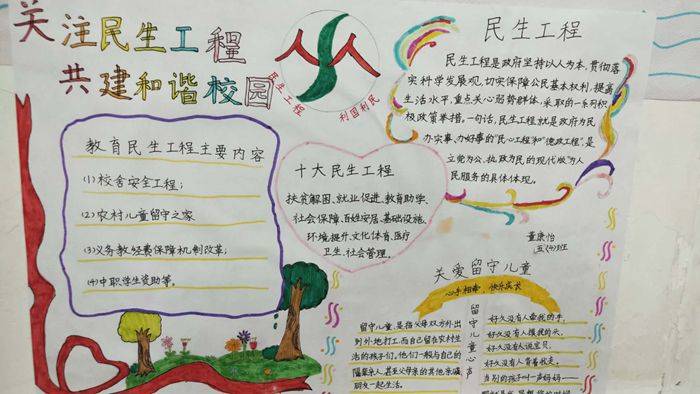 关注民生工程
共建和谐校园
民生工程
利国利民
教育民生工程主要内容
(1)校舍安全工程;
(2)农村儿童留守之家
(3)义务教经费保障机制改革;
(4)中职学生资助等。
十大民生工程
扶贫解困、就业促进、教育助学、
社会保障、百姓安居、基础设施、
环境提升、文化体育、医疗
卫生、社会管理。
民生工程
民生工程是政府坚持以人为本,贯彻落
实科学发展观,切实保障公民基本权利,提高
生活水平,重点关心弱势群体,采取的一系列积
极政策举措,一句话,民生工程就是政府为民
办实事、办好事的"民心工程"和"德政工程",是
立党为公、执政为民的现代版"为人
民服务的具体体现。
董康怡
五(4)班
关爱留守儿童
心手相牵,快乐成长
留守儿童,是指父母双方外出
到外地打工,而自己留在农村生
活的孩子们。他们一般与自己的
隔辈亲人,甚至父母亲的其他亲戚
朋友一起生活。
留守儿童心声
好久没有人牵我的手,
好久没有人摸我的头,
好久没有人说宝贝,
好久没有人背着我走。
当别的孩子叫一声妈妈